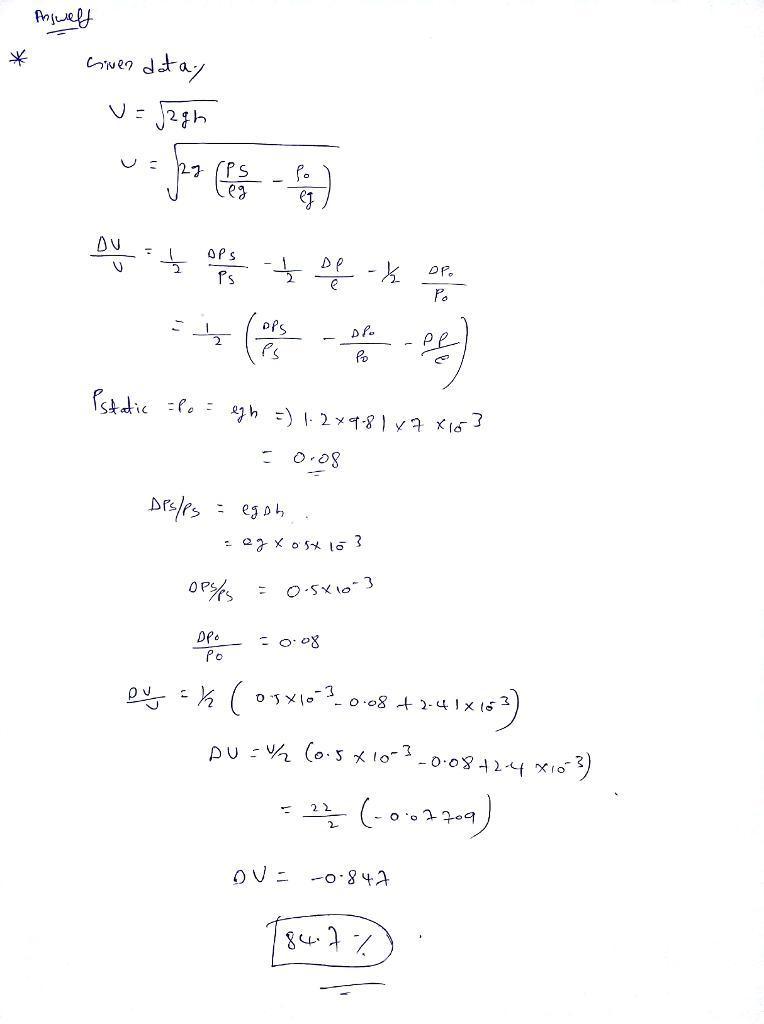 Answer
* Given data,
V = √2gh
U = √2g (Ps/ρg - P₀/ρg)
ΔU/U = 1/2 ΔPs/Ps - 1/2 Δρ/ρ - 1/2 ΔP₀/P₀
= 1/2 (ΔPs/Ps - ΔP₀/P₀ - Δρ/ρ)
Pstatic = P₀ = ρgh => 1.2 x 9.81 x 7 x 10⁻³
= 0.08
ΔPs/Ps = ρgΔh
= ρg x 0.5x 10⁻³
ΔPs/Ps = 0.5x10⁻³
ΔP₀/P₀ = 0.08
ΔU/U = 1/2 (0.5x10⁻³ - 0.08 + 2.41x10⁻³)
ΔU = U/2 (0.5 x 10⁻³ - 0.08 + 2.4 x10⁻³)
= 22/2 (-0.07709)
ΔU = -0.847
84.7 %